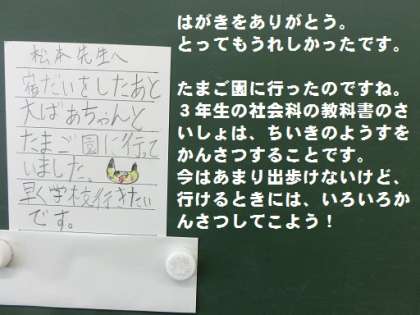 松本先生へ
宿だいをしたあと
大ばあちゃんと
たまご園に行って
いました、
早く学校行きたい
です。
はがきをありがとう。
とってもうれしかったです。
たまご園に行ったのですね。
３年生の社会科の教科書のさ
いしょは、ちいきのようすを
かんさつすることです。
今はあまり出歩けないけど、
行けるときには、いろいろか
んさつしてこよう！